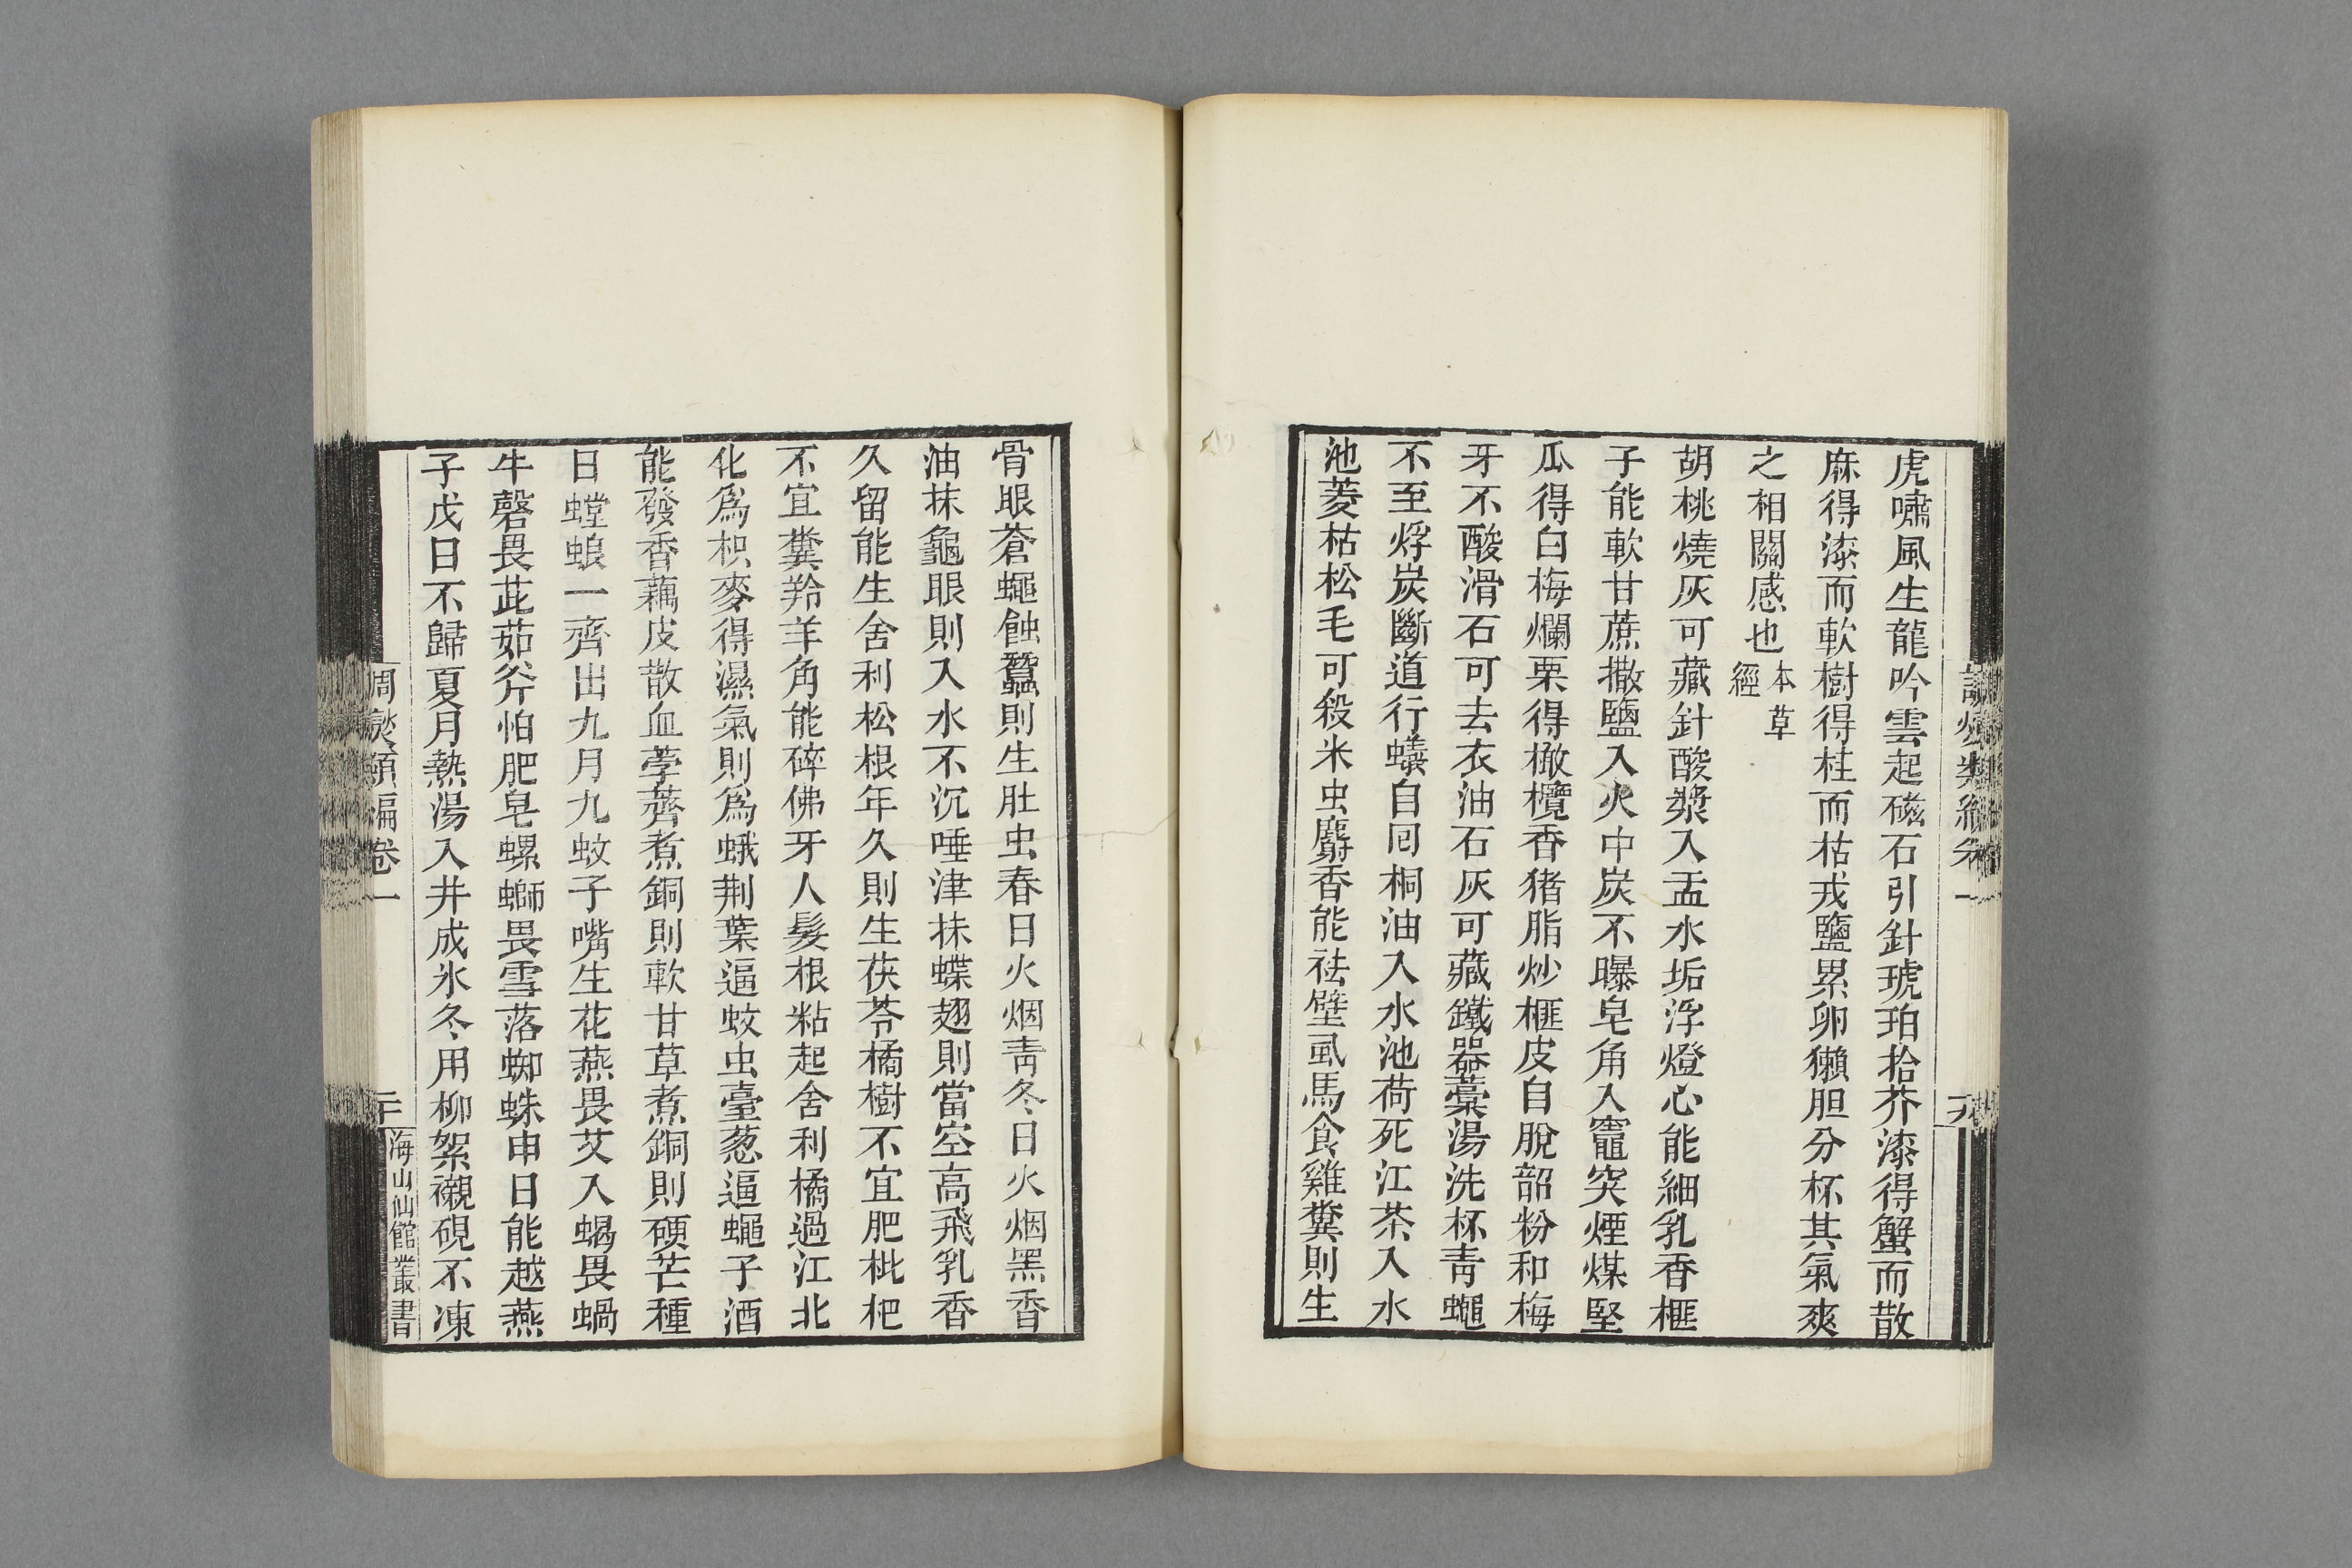 虎嘯風生龍吟雲起磁石引針琥珀拾芥漆得蟹而散
麻得漆而軟樹得桂而枯戎鹽累卵獺胆分杯其氣爽
之相關感也
本草
經
胡桃燒灰可藏針酸漿入盂水垢浮燈心能細乳香榧
子能軟甘蔗撒鹽入火中炭不曝皂角入竈突煙煤堅
瓜得白梅爛栗得橄欖香猪脂炒榧皮自脫韶粉和梅
牙不酸滑石可去衣油石灰可藏鐵器藁湯洗杯靑蠅
不至烰炭斷道行蟻自囘桐油入水池荷死江茶入水
池菱枯松毛可殺米虫麝香能祛壁虱馬食雞糞則生
骨眼蒼蠅蝕蠶則生肚虫春日火烟靑冬日火烟黑香
油抹龜眼則入水不沉唾津抹蝶翅則當空高飛乳香
久留能生舍利松根年久則生茯苓橘樹不宜肥枇杷
不宜糞羚羊角能碎佛牙人髮根粘起舍利橘過江北
化爲枳麥得濕氣則爲蛾荆葉逼蚊虫臺葱逼蠅子酒
能發香藕皮散血荸薺煮銅則軟甘草煮銅則硬芒種
日螳蜋一齊出九月九蚊子嘴生花燕畏艾入蝎畏蝸
牛磬畏茈茹斧怕肥皂螺螄畏雪落蜘蛛申日能越燕
子戊日不歸夏月熱湯入井成氷冬用柳絮襯硯不凍
調爕類編卷一
二十
海山仙館叢書